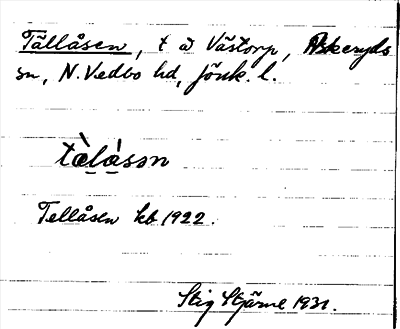 Tällåsen, t å Västorp, Askeryds
sn, N. Vedbo hd, Jönk. l.
tæ̀låsən
Tellåsen kb 1922.
Stig Stjärne 1931.